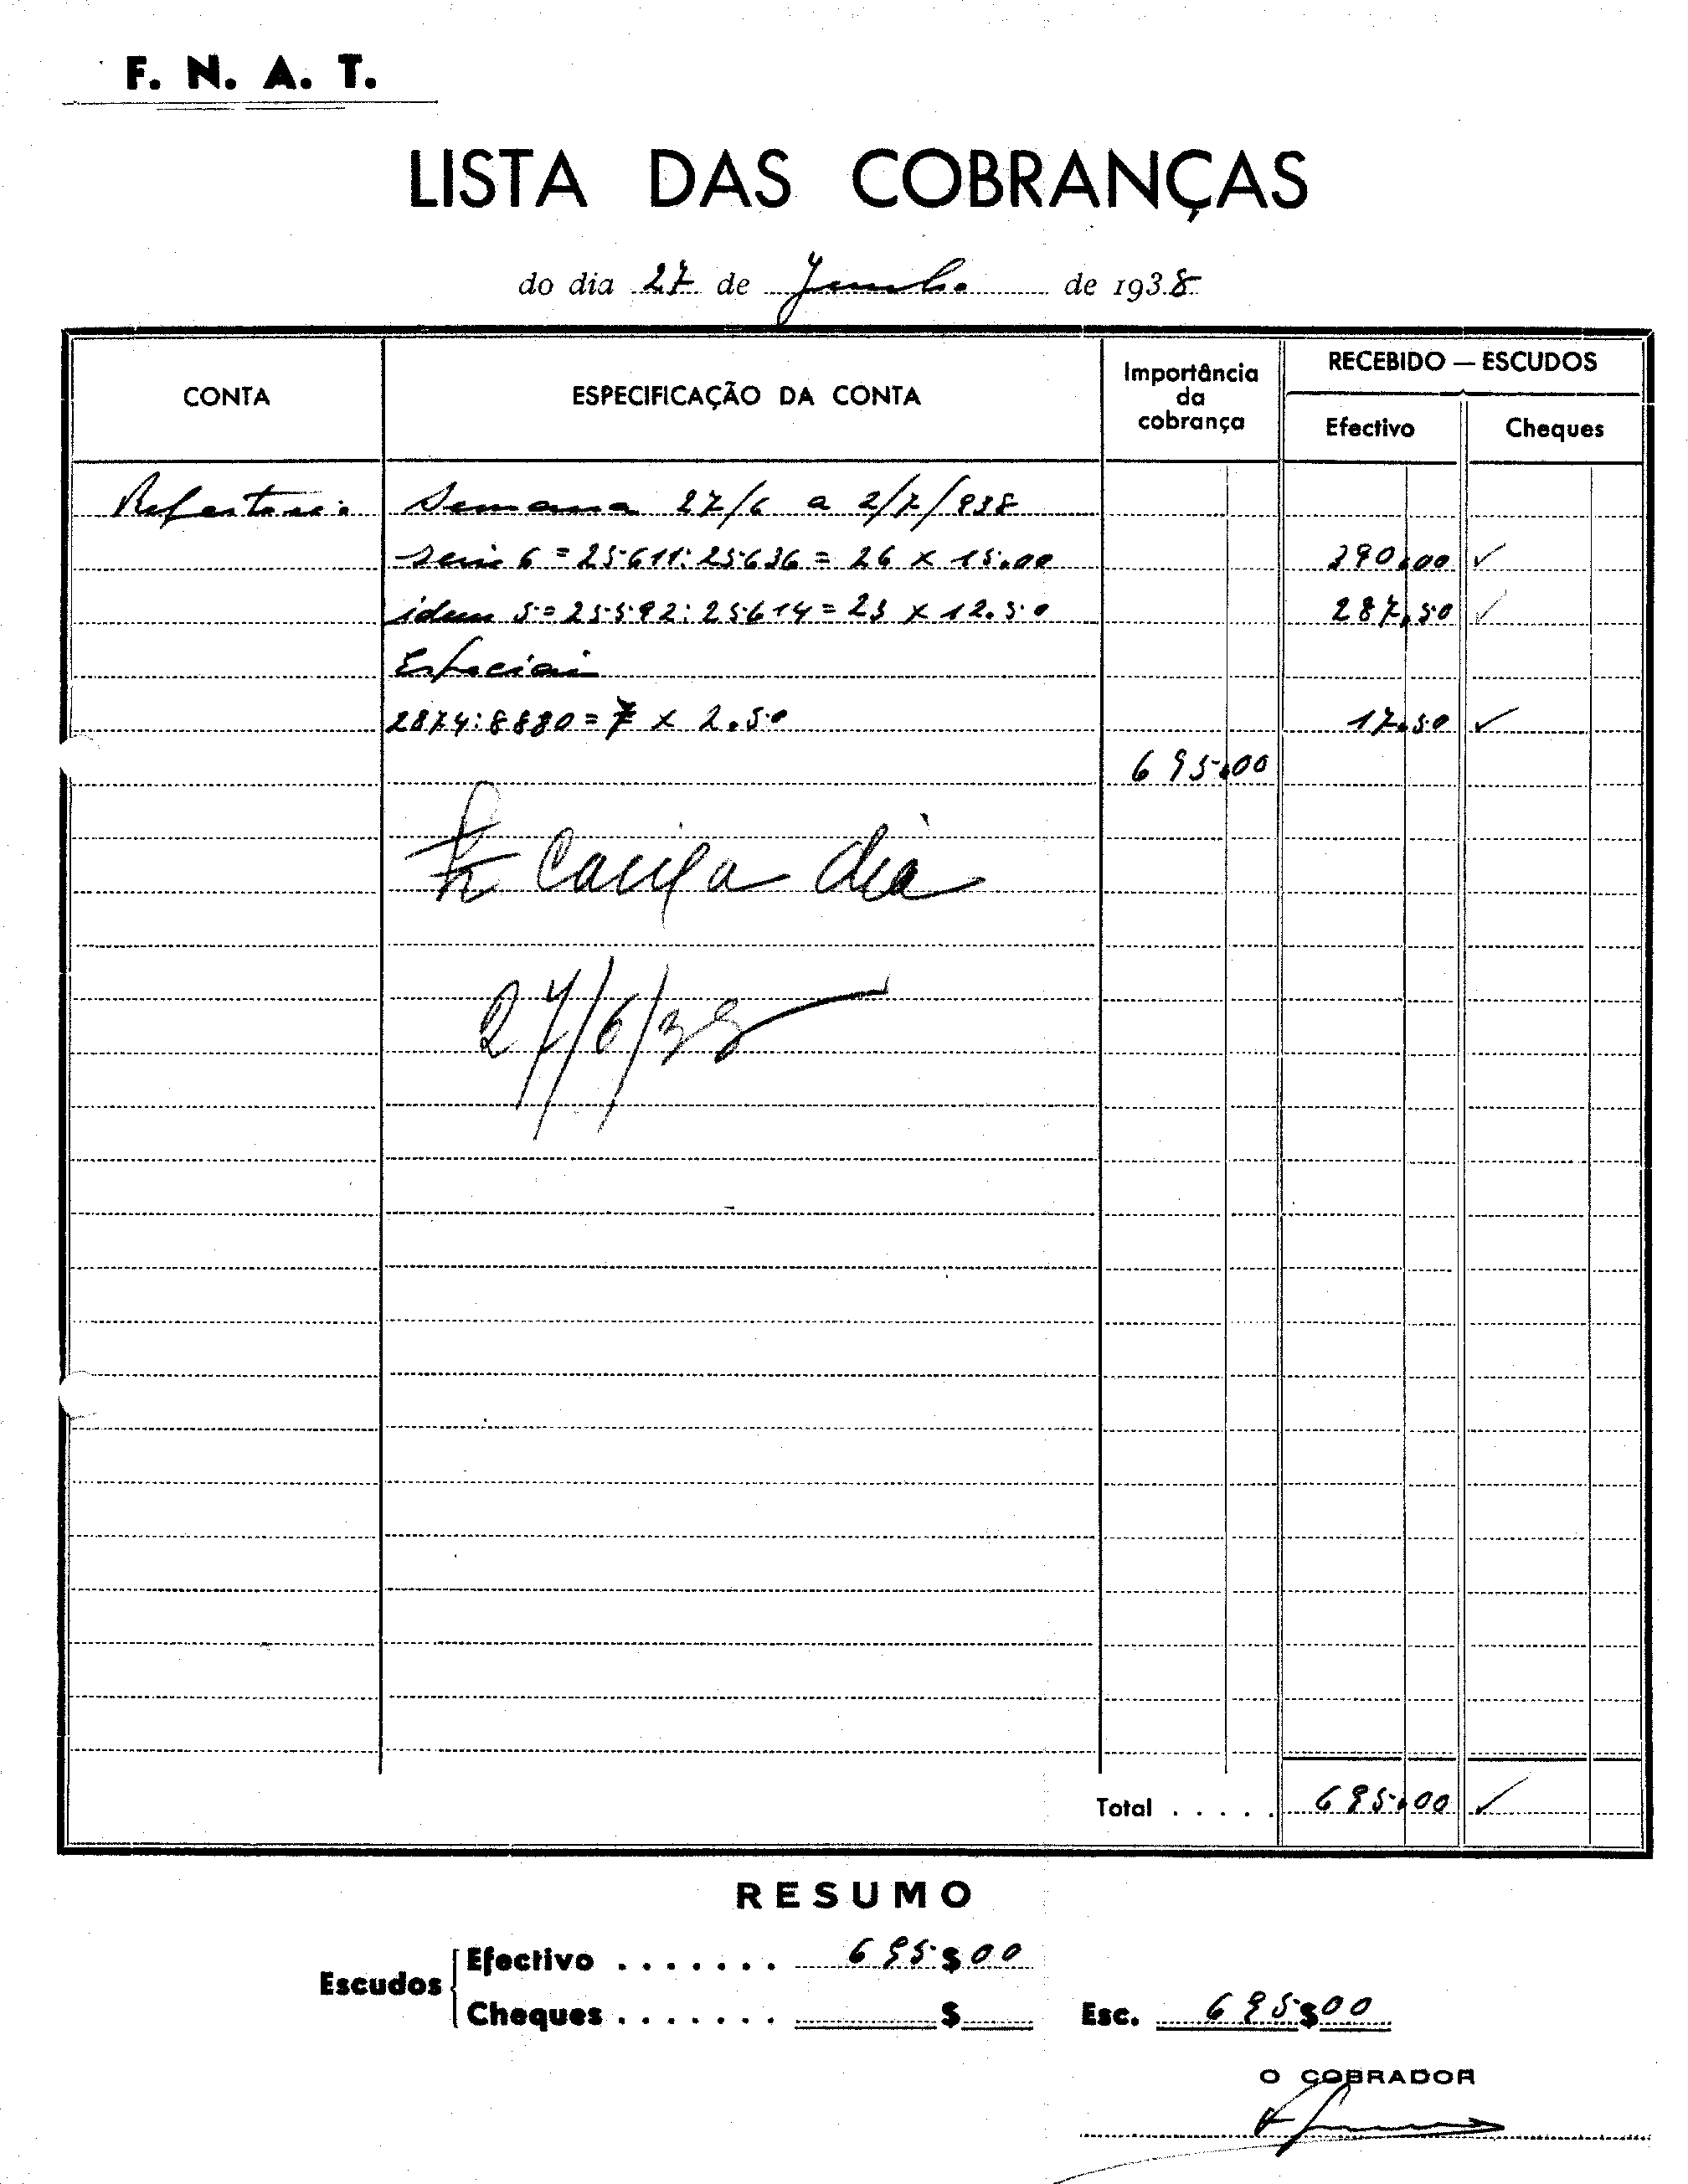 F. N. A. T.
LISTA DAS COBRANÇAS
do dia 27 de Junho de 1938
CONTA ESPECIFICAÇÃO DA CONTA Importância da cobrança RECEBIDO — ESCUDOS
Efectivo Cheques
Refeitorio Semana 27/6 a 2/7/938
Serie 6 = 25611:25636 = 26 x 15.00 390,00 ✓
idem 5 = 25592:25614 = 23 x 12.50 287,50 ✓
Especiai
2874:8880 = 7 x 2.50 17.50 ✓
695.00
Caixa dia
27/6/38
Total . . . . . 695.00 ✓
RESUMO
Escudos Efectivo . . . . . . . 695$00
Cheques . . . . . . . $ Esc. 695$00
O COBRADOR